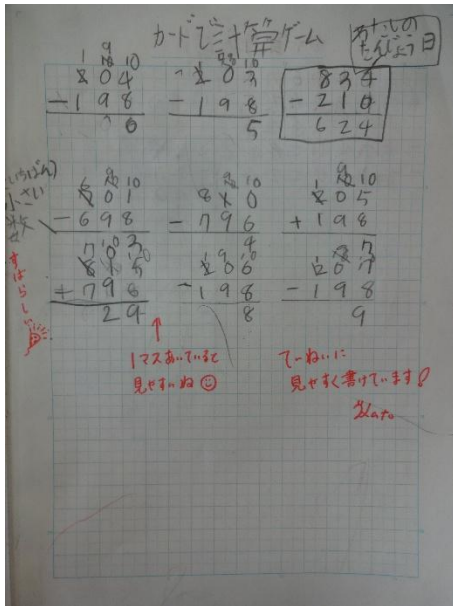 カードで計算ゲーム
わたしの
たんじょう日
204
-198
6
203
-198
5
834
-210
624
いちばん
小さい
数
701
-698
3
800
-796
4
205
+198
7
815
+798
29
206
-198
8
207
-198
9
すばらしい
1マスあいていると
見やすいね
てーねいに
見やすく書けています!